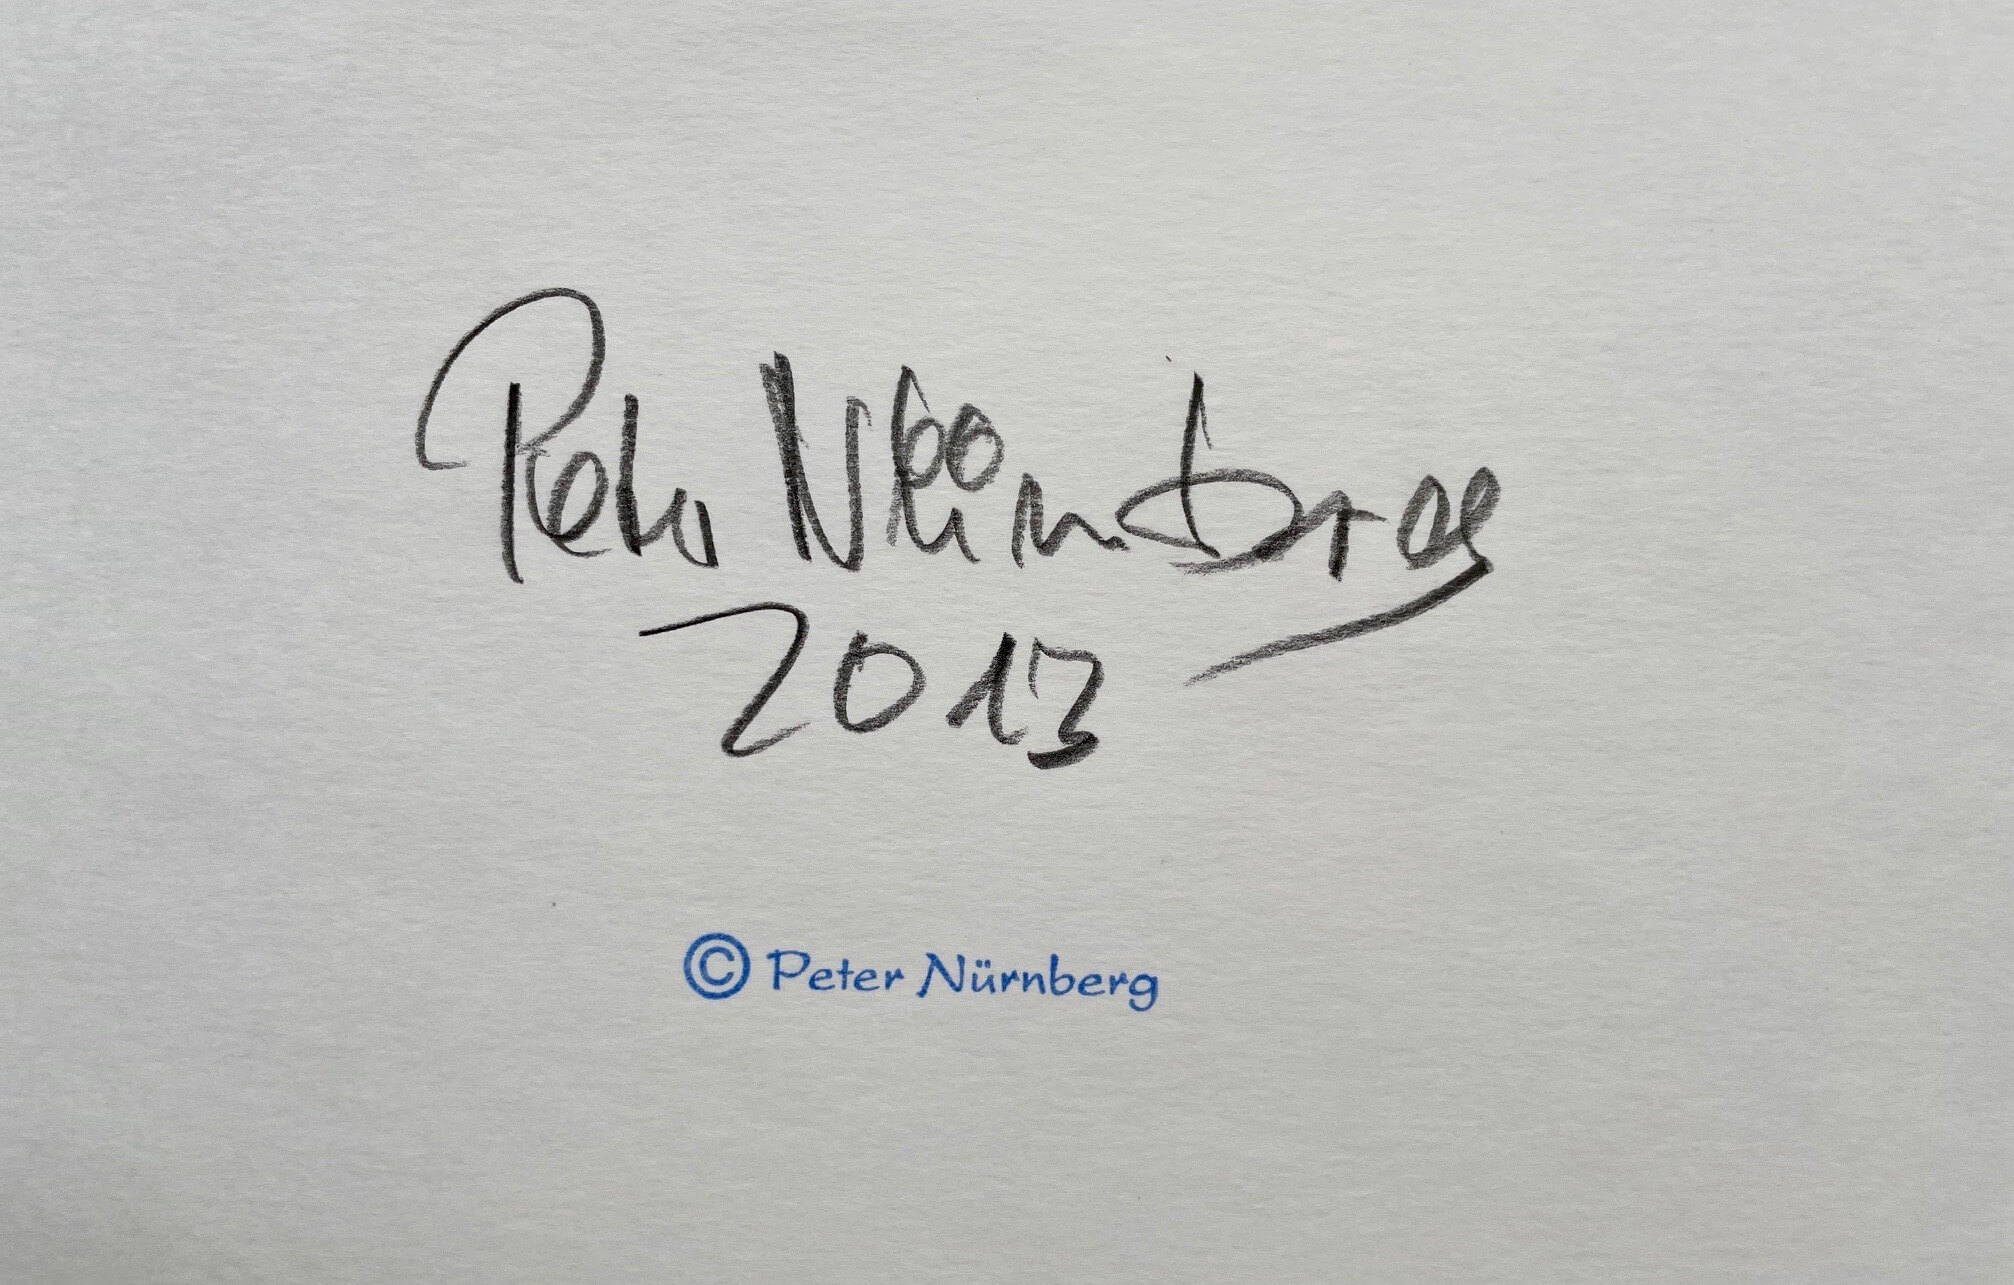 Peter Nürnberg
2013
© Peter Nürnberg